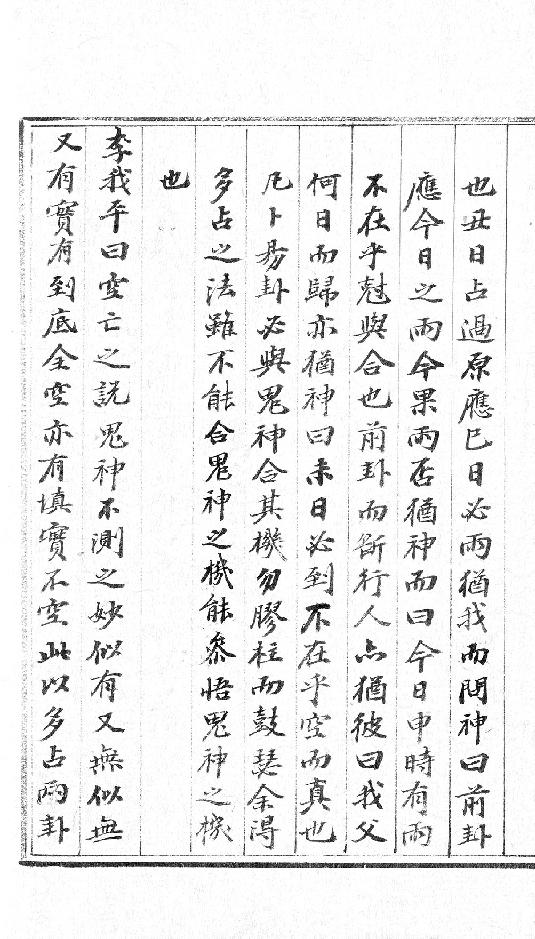 也丑日占遇原應巳日必雨猶我而問神曰前卦
應今日之雨今果雨否猶神而曰今日申時有雨
不在乎尅與合也前卦而斷行人亦猶彼曰我父
何日而歸亦猶神曰未日必到不在乎空而真也
凡卜易卦必與鬼神合其機勿膠柱而鼓瑟余得
多占之法雖不能合鬼神之機能叅悟鬼神之機
也
李我平曰空亡之説鬼神不測之妙似有又無似無
又有實有到底全空亦有填實不空此以多占兩卦